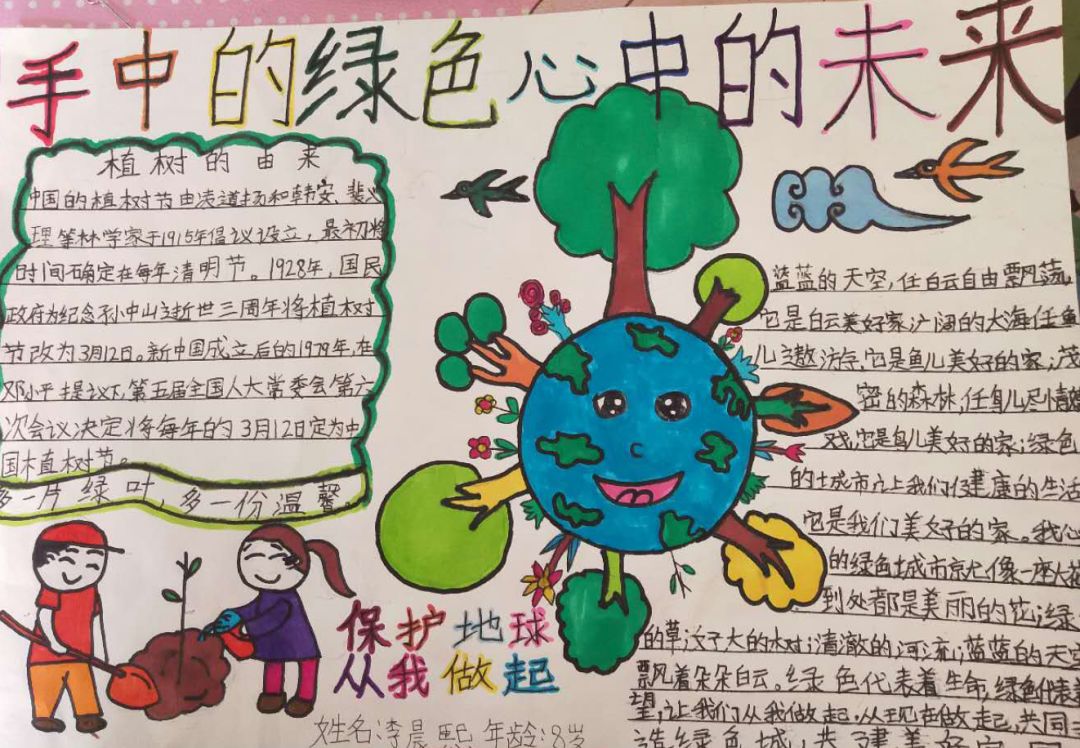 手中的绿色心中的未来
植树的由来
中国的植树节由凌道扬和韩安、裴义
理等林学家于1915年倡议设立，最初将
时间确定在每年清明节。1928年，国民
政府为纪念孙中山逝世三周年将植树
节改为3月12日。新中国成立后的1979年，在
邓小平提议下，第五届全国人大常委会第六
次会议决定将每年的3月12日定为中
国植树节。
多一片绿叶，多一份温馨。
蓝蓝的天空，任白云自由飘荡
它是白云美好家；广阔的大海任鱼
儿遨游，它是鱼儿美好的家；茂
密的森林，任鸟儿尽情
戏，它是鸟儿美好的家；绿色
的城市让我们健康的生活
它是我们美好的家。我心
的绿色城市就像一座大
到处都是美丽的花；绿
的草；大的树；清澈的河流；蓝蓝的天空
飘着朵朵白云。绿色代表着生命，绿色代表
望，让我们从我做起，从现在做起，共同
造绿色城，共建美好
保护地球
从我做起
姓名：李晨熙 年龄：8岁